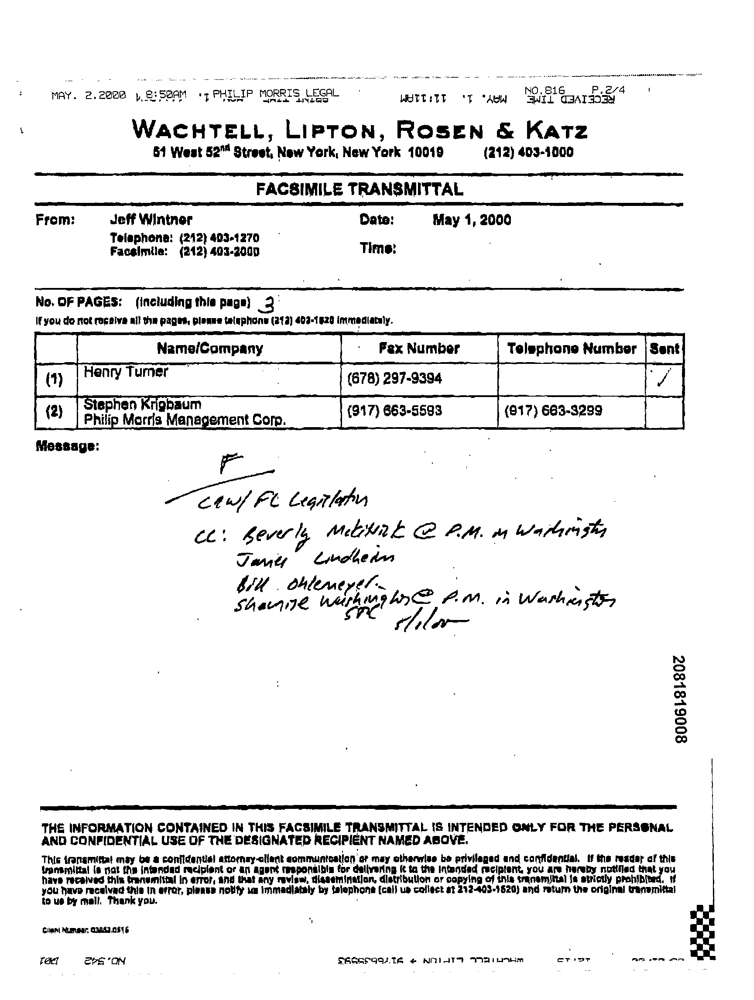 MAY. 2.2000 8:50AM PHILIP MORRIS LEGAL NO.816 P.2/4
RECEIVED TIME MAY. 1. 11:11AM
WACHTELL, LIPTON, ROSEN & KATZ
51 West 52nd Street, New York, New York 10019 (212) 403-1000
FACSIMILE TRANSMITTAL
From: Jeff Wintner Date: May 1, 2000
Telephone: (212) 403-1270
Facsimile: (212) 403-2000 Time:
No. OF PAGES: (including this page) 3
If you do not receive all the pages, please telephone (212) 403-1520 immediately.
Name/Company Fax Number Telephone Number Sent
(1) Henry Turner (678) 297-9394 /
(2) Stephen Krigbaum (917) 663-5593 (917) 663-3299
Philip Morris Management Corp.
Message:
F
Law/FL Legislation
CC: Beverly @ P.M. in Washington
James Lindheim
Bill Ohlemeyer
Washington @ P.M. in Washington
5/1/00
2081819008
THE INFORMATION CONTAINED IN THIS FACSIMILE TRANSMITTAL IS INTENDED ONLY FOR THE PERSONAL
AND CONFIDENTIAL USE OF THE DESIGNATED RECIPIENT NAMED ABOVE.
This transmittal may be a confidential attorney-client communication or may otherwise be privileged and confidential. If the reader of this
transmittal is not the intended recipient or an agent responsible for delivering it to the intended recipient, you are hereby notified that you
have received this transmittal in error, and that any review, dissemination, distribution or copying of this transmittal is strictly prohibited. If
you have received this in error, please notify us immediately by telephone (call us collect at 212-403-1520) and return the original transmittal
to us by mail. Thank you.
Client Number: 03652.0516
NO.542 WACHTELL LIPTON → 916635593